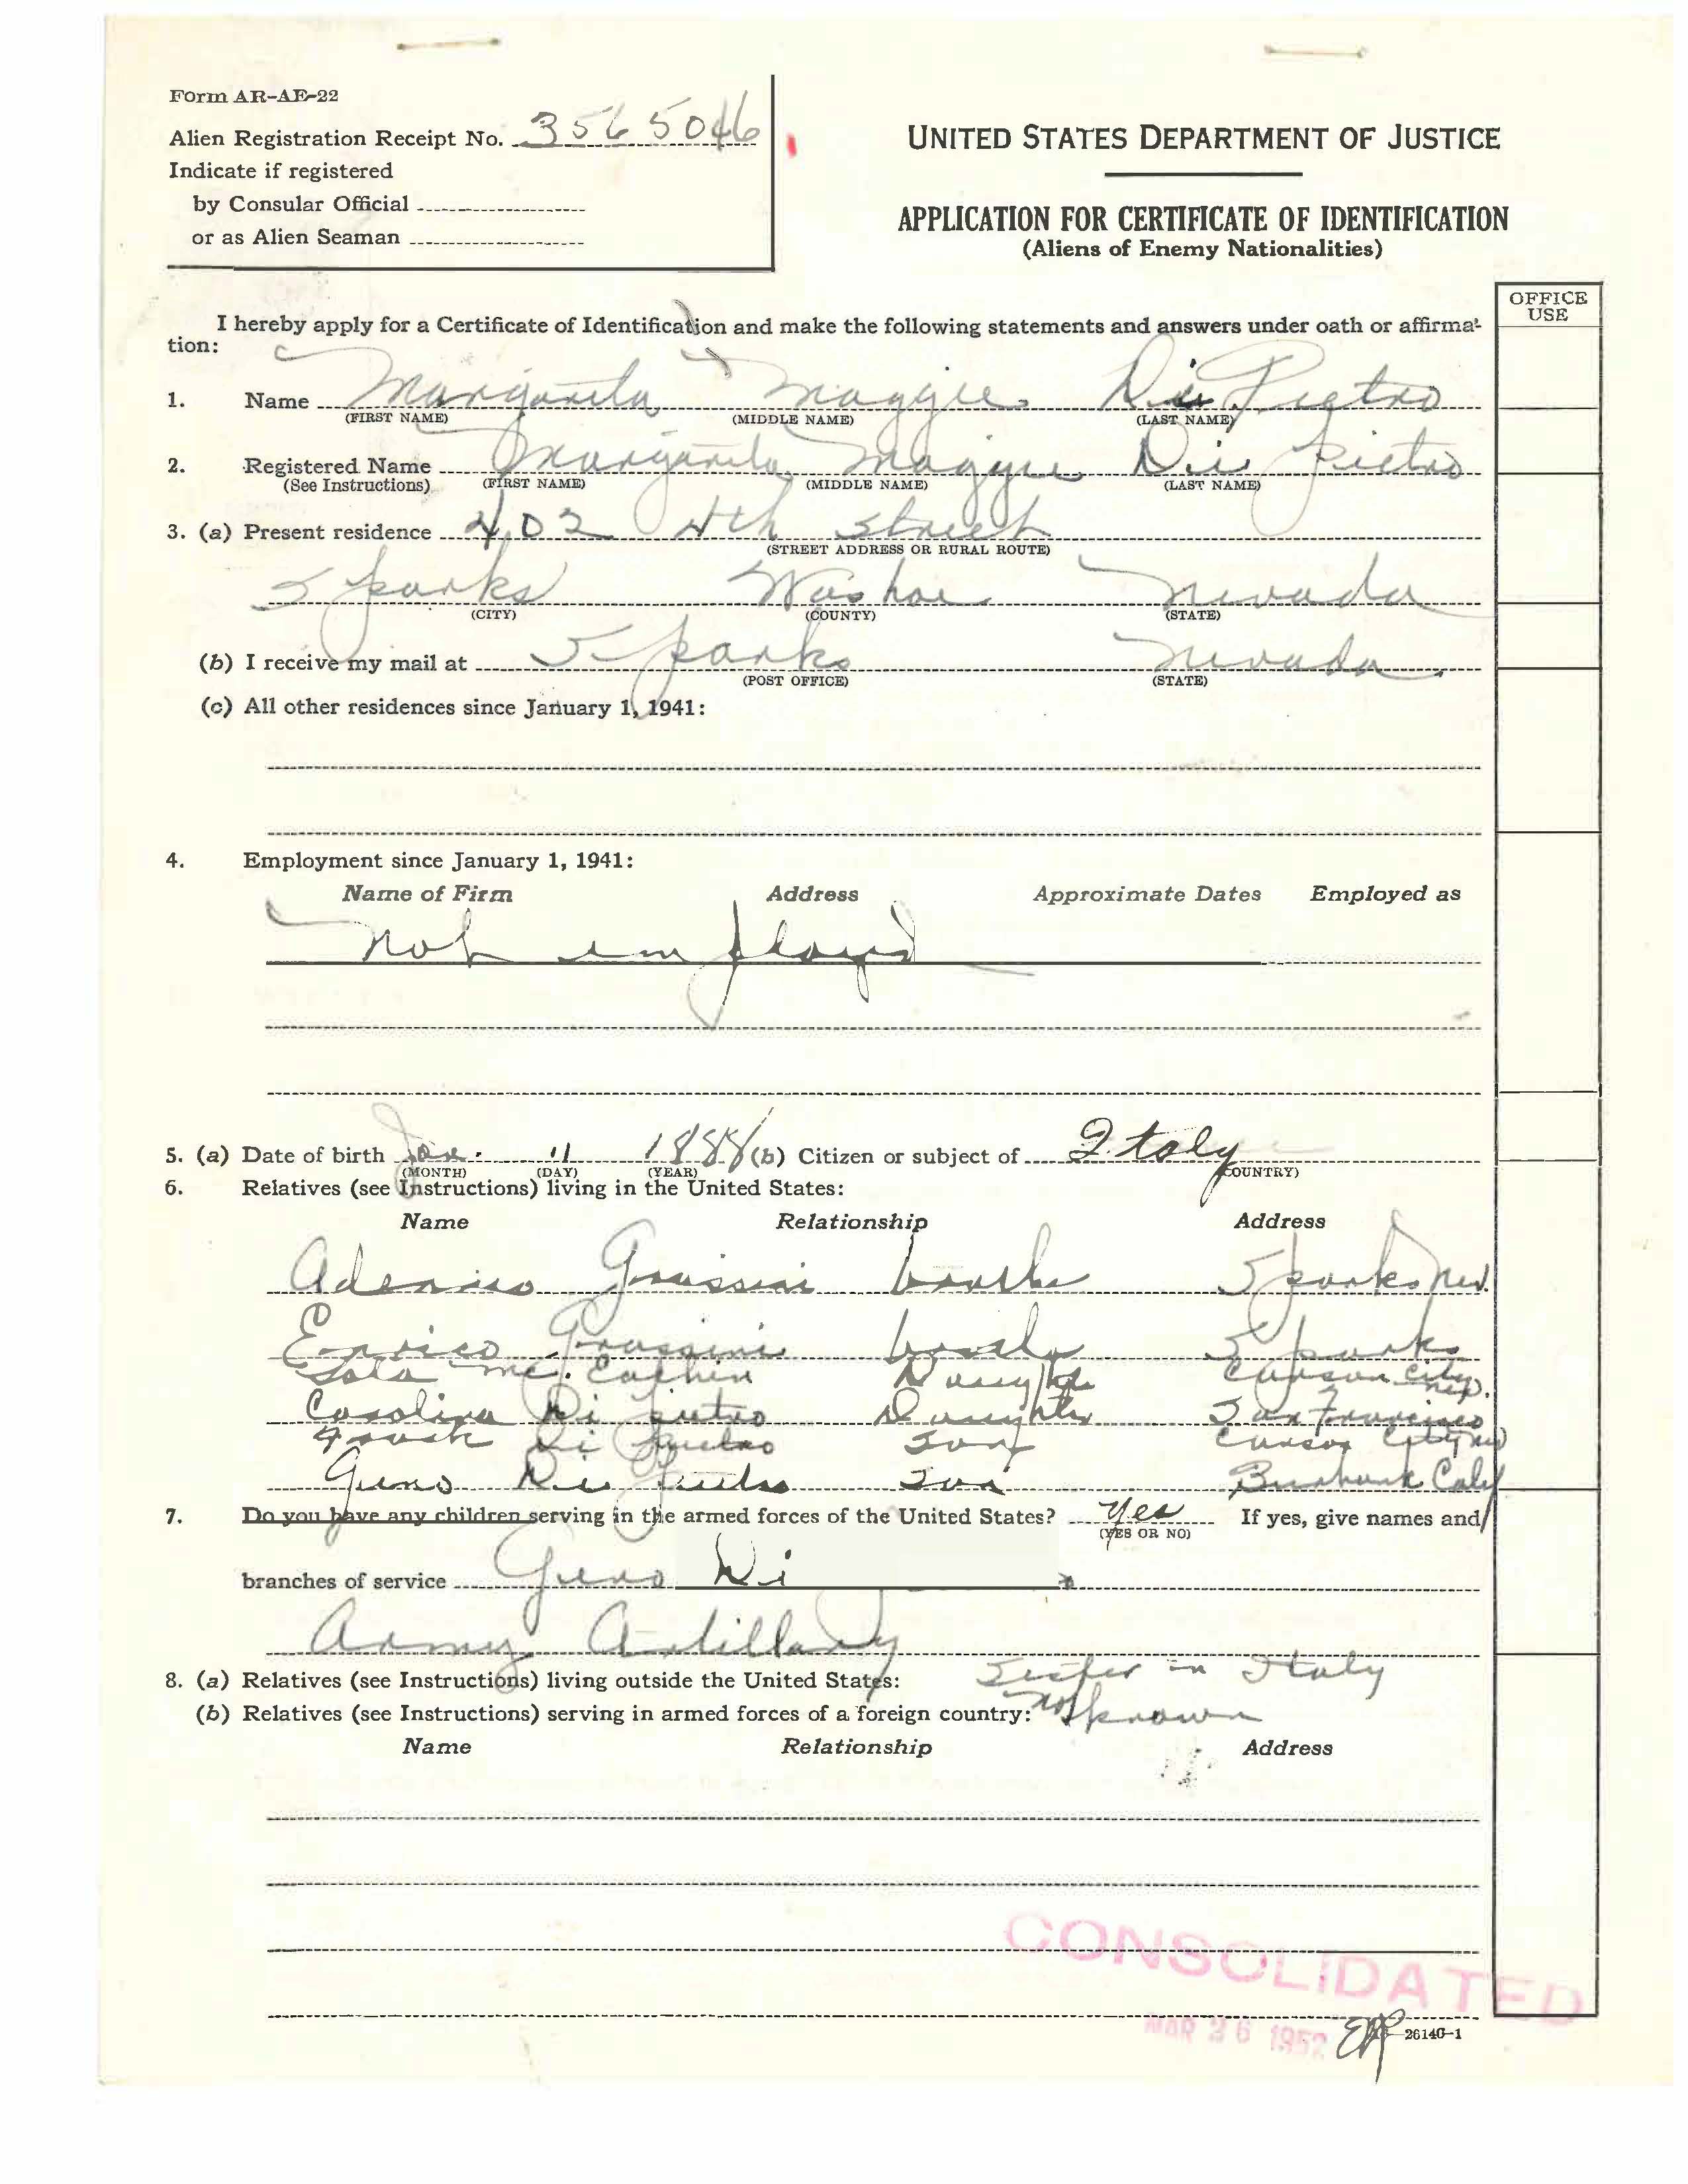 Form AR-AE-22
Alien Registration Receipt No. 3565046
Indicate if registered
by Consular Official
or as Alien Seaman
UNITED STATES DEPARTMENT OF JUSTICE
APPLICATION FOR CERTIFICATE OF IDENTIFICATION
(Aliens of Enemy Nationalities)
OFFICE
USE
I hereby apply for a Certificate of Identification and make the following statements and answers under oath or affirma-
tion:
1. Name Margarita Maggie Di Pietro
(FIRST NAME) (MIDDLE NAME) (LAST NAME)
2. Registered Name Margarita Maggie Di Pietro
(See Instructions) (FIRST NAME) (MIDDLE NAME) (LAST NAME)
3. (a) Present residence 402 4th Street
(STREET ADDRESS OR RURAL ROUTE)
Sparks Washoe Nevada
(CITY) (COUNTY) (STATE)
(b) I receive my mail at Sparks Nevada
(POST OFFICE) (STATE)
(c) All other residences since January 1, 1941:
4. Employment since January 1, 1941:
Name of Firm Address Approximate Dates Employed as
Not employd
5. (a) Date of birth Jan. 11 1888 (b) Citizen or subject of Italy
(MONTH) (DAY) (YEAR) (COUNTRY)
6. Relatives (see Instructions) living in the United States:
Name Relationship Address
Grassini Sparks Nev.
Enrico Grassini Sparks
Daughter Carson City Nev.
Carolina Di Pietro Daughter San Francisco
Frank Di Pietro Son Carson City Nev
Geno Di Pietro Son Burbank Calif
7. Do you have any children serving in the armed forces of the United States? Yes If yes, give names and
(YES OR NO)
branches of service Geno Di
Army Artillary
8. (a) Relatives (see Instructions) living outside the United States: Sister in Italy
(b) Relatives (see Instructions) serving in armed forces of a foreign country: Not known
Name Relationship Address
CONSOLIDATED
MAR 26 1952 26140-1